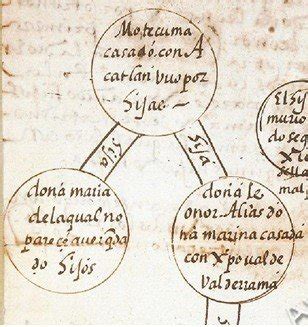 Motecuma
casado con A
catlan vuo por
hijas
hija
hija
doña maria
de la qual no
parece aver q̃da
do hijos
doña le
onor Alias do
ña marina casada
con xpoual de
Valderrama
El
murio
do seq